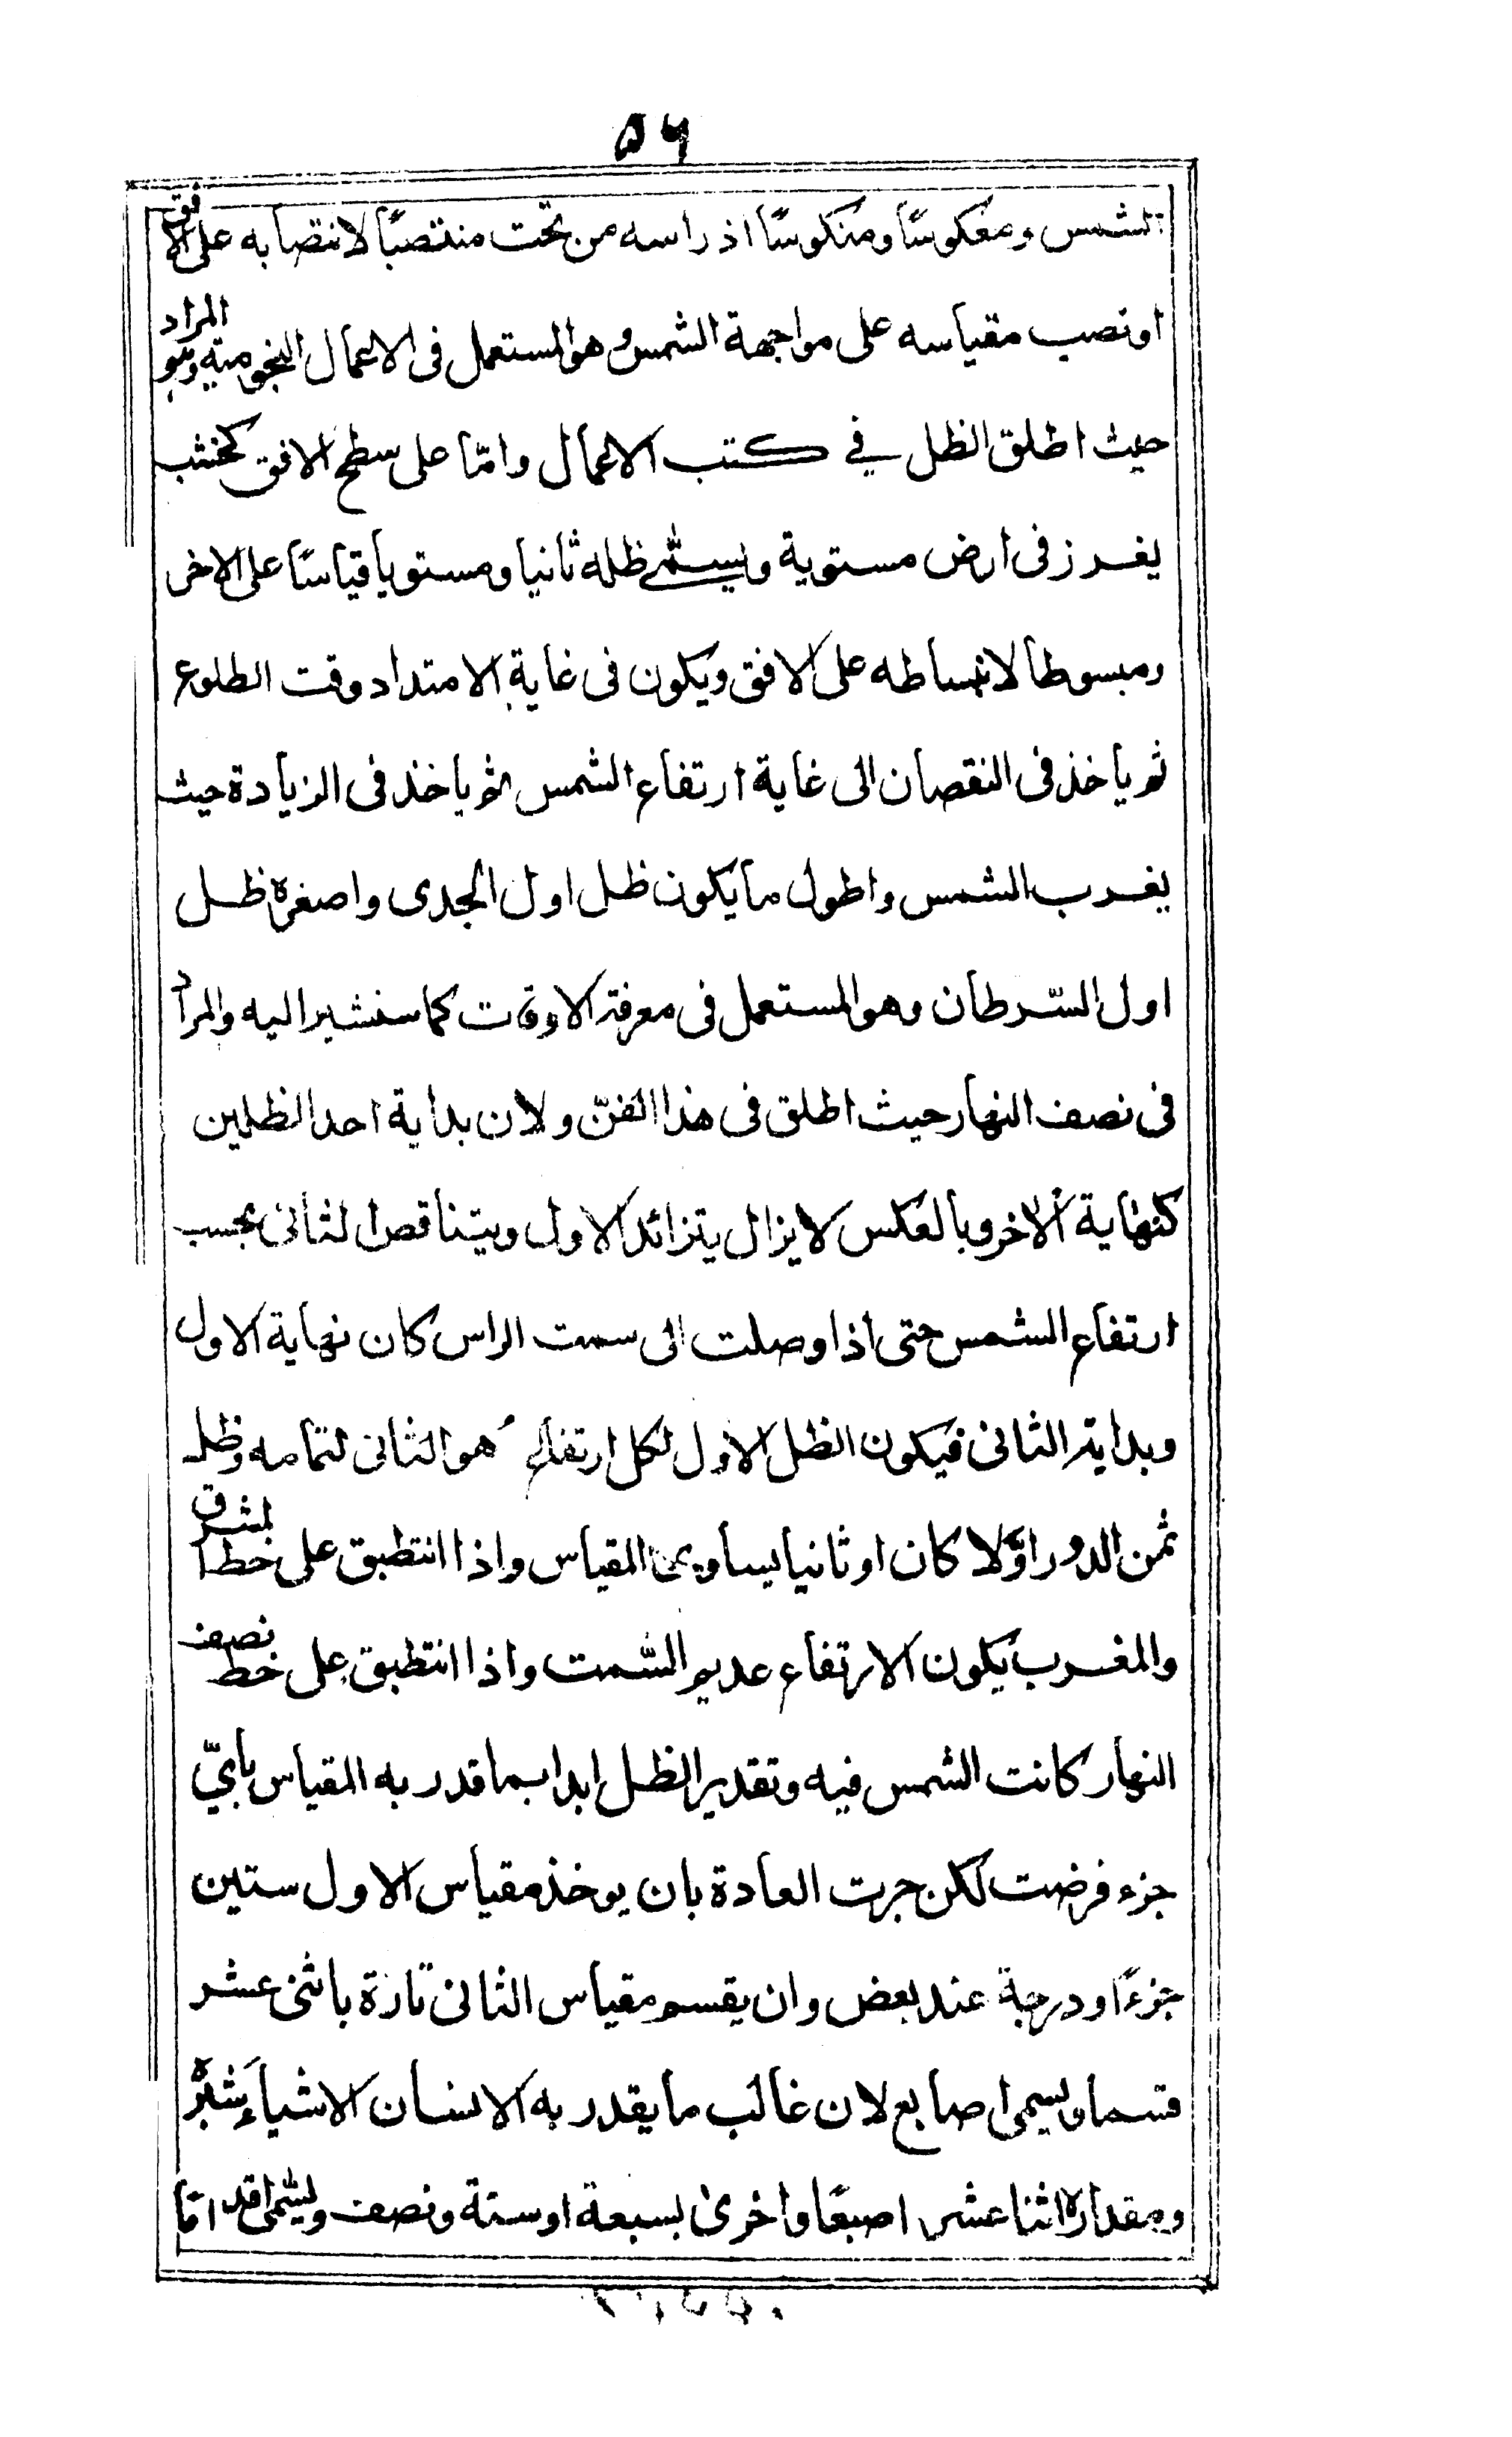 ٥٦
الشمس ومعكوسًا ومنكوسًا اذ راسه من تحت منتصبًا لانتصابه على الافق
او نصب مقياسه على مواجهة الشمس وهو المستعمل فى الاعمال النجومية وهو المراد
حيث اطلق الظل في كتب الاعمال وامّا على سطح الافق كخشب
يغرز فى ارض مستوية ويسمّى ظله ثانيا ومستويا قياسًا على الاخر
ومبسوطا لانبساطه على الافق ويكون فى غاية الامتداد وقت الطلوع
ثم ياخذ فى النقصان الى غاية ارتفاع الشمس ثم ياخذ فى الزيادة حيث
يغرب الشمس واطول ما يكون ظل اول الجدى واصغره ظل
اول السّرطان وهو المستعمل فى معرفة الاوقات كما سنشير اليه والمراد
فى نصف النهار حيث اطلق فى هذا الفنّ ولان بداية احد الظلين
كنهاية الاخر وبالعكس لا يزال يتزائد الاول ويتناقص الثانى بحسب
ارتفاع الشمس حتى اذا وصلت الى سمت الراس كان نهاية الاول
وبداية الثانى فيكون الظل الاول لكل ارتفاع هو الثانى لتمامه وظل
ثمن الدور اوّلا كان او ثانيا يساوى المقياس واذا انتطبق على خط المشرق
والمغرب يكون الارتفاع عديم السّمت واذا انتطبق على خط نصف
النهار كانت الشمس فيه وتقدير الظل ابدا بما قدر به المقياس بايّ
جزء فرضت لكن جرت العادة بان يوخذ مقياس الاول ستين
جزءًا ودرجة عند بعض وان يقسم مقياس الثانى تارة باثنى عشر
قسما ويسمى اصابع لان غالب ما يقدر به الانسان الاشياء شبره
ومقداره اثنا عشر اصبعًا واخرى بسبعة او ستة ونصف ويسمّى اقداما